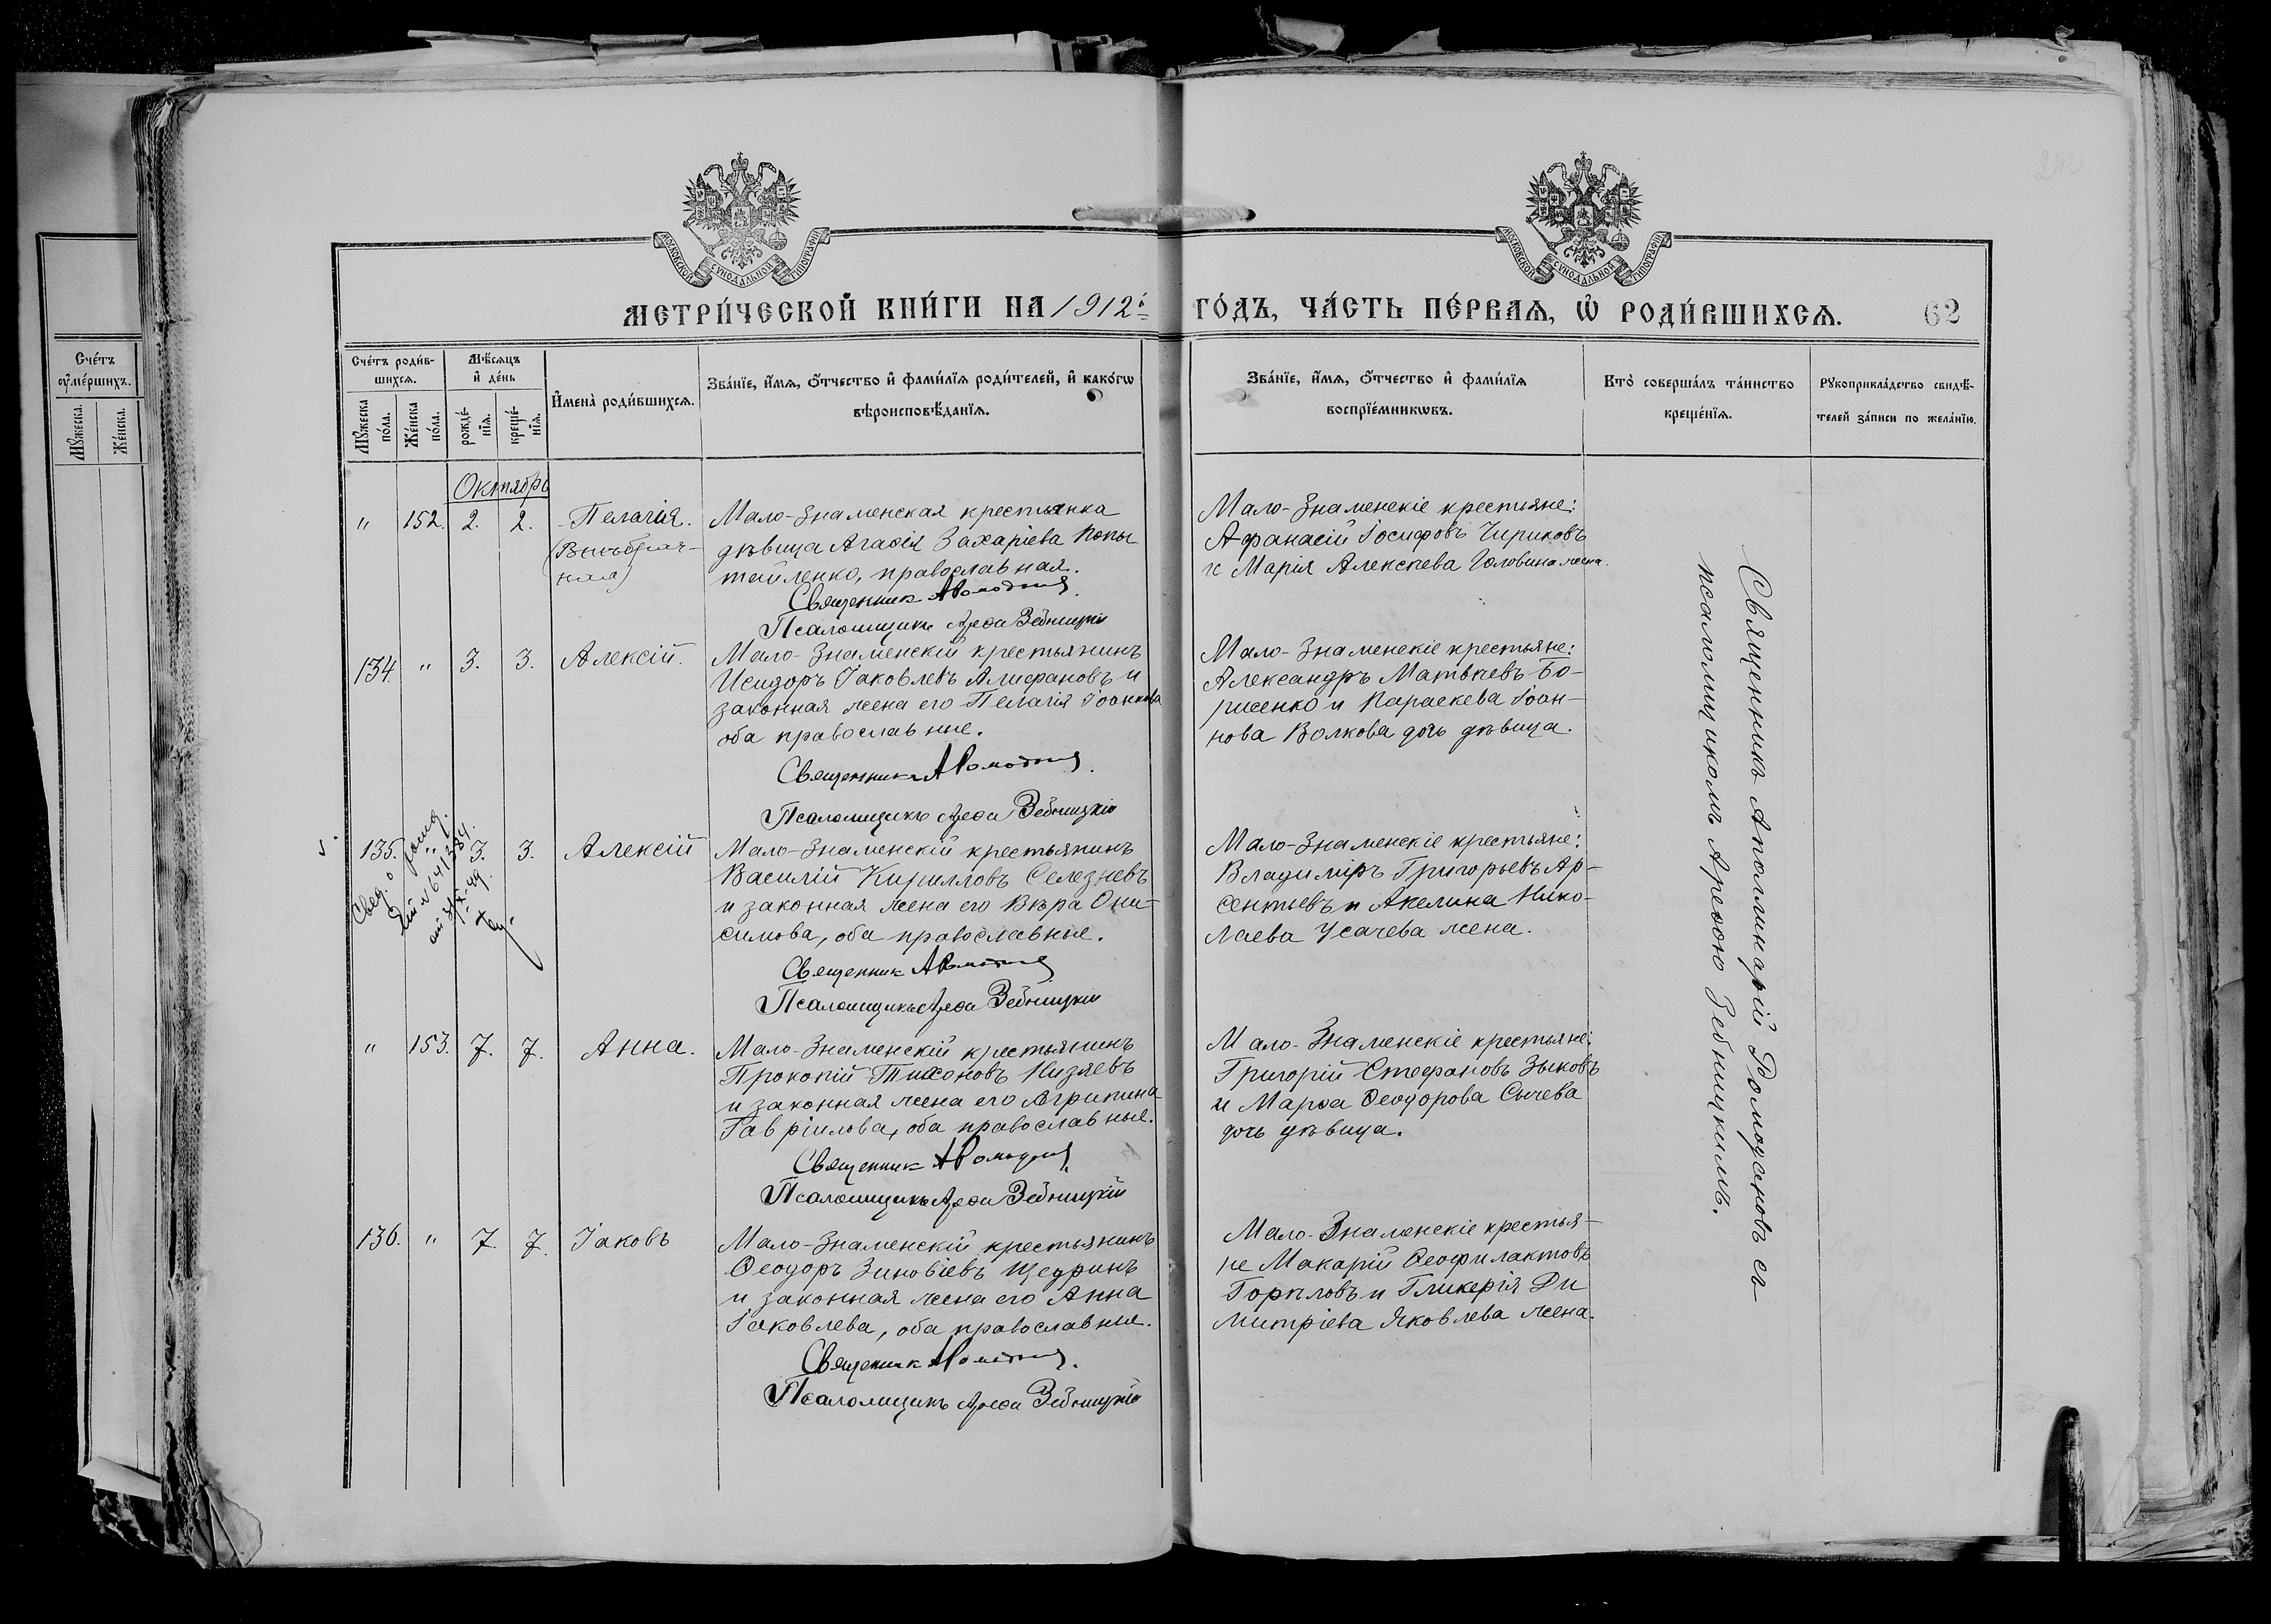 240
МОСКОВСКОЙ СѴНОДАЛЬНОЙ ТИПОГРАФІИ
МОСКОВСКОЙ СѴНОДАЛЬНОЙ ТИПОГРАФІИ
МЕТРИ́ЧЕСКОЙ КНИ́ГИ НА 1912й ГО́ДЪ, ЧА́СТЬ ПЕ́РВАѦ, Ѡ҆ РОДИ́ВШИХСѦ. 62
Сче́тъ ᲂу҆ме́ршихъ.
Мꙋ́жеска.
Же́нска.
Сче́тъ роди́вшихсѧ.
Мꙋ́жеска по́ла.
Же́нска по́ла.
Мѣ́сѧцъ и҆ де́нь
рожде́нїѧ.
креще́нїѧ.
И҆мена̀ роди́вшихсѧ.
Зва́нїе, и҆́мѧ, ѻ҆́тчество и҆ фами́лїѧ роди́телей, и҆ како́гѡ
вѣроисповѣ́данїѧ.
Зва́нїе, и҆́мѧ, ѻ҆́тчество и҆ фами́лїѧ
воспрїе́мникѡвъ.
Кто̀ соверша́лъ та́инство
креще́нїѧ.
Рꙋкоприкла́дство свидѣ́-
телей за́писи по жела́нїю.
Октябрь
" 152. 2. 2. Пелагія.
(Внѣбрач-
ная)
Мало-Знаменская крестьянка
дѣвица Агаѳія Захаріева Копы
тайленко, православная.
Священник А Ромодзя
Псаломщикъ Арефа Зебницкій
Мало-Знаменскіе крестьяне:
Афанасій Іосифовъ Чириковъ
и Марія Алексѣева Головина жена.
134. " 3. 3. Алексій.
Мало-Знаменскій крестьянинъ
Исидоръ Іаковлевъ Алифановъ и
законная жена его Пелагія Іоаннова
оба православные.
Священник А Ромодзя
Псаломщикъ Арефа Зебницкій
Мало-Знаменскіе крестьяне:
Александръ Матвѣевъ Бо-
рисенко и Параскева Іоан-
нова Волкова дочь дѣвица.
135. " 3. 3. Алексій
Мало-Знаменскій крестьянинъ
Василій Кирилловъ Селезневъ
и законная жена его Вѣра Они-
симова, оба православные.
Священник А Ромодзя
Псаломщикъ Арефа Зебницкій
Мало-Знаменскіе крестьяне:
Владиміръ Григорьевъ Ар-
сентьевъ и Акелина Нико-
лаева Усачева жена.
" 153. 7. 7. Анна.
Мало-Знаменскій крестьянинъ
Прокопій Тихоновъ Низяевъ
и законная жена его Агрипина
Гавріилова, оба православные.
Священник А Ромодзя
Псаломщикъ Арефа Зебницкій
Мало-Знаменскіе крестьяне:
Григорій Стефановъ Зыковъ
и Марѳа Ѳеодорова Сычева
дочь дѣвица.
136. " 7. 7. Іаковъ
Мало-Знаменскій крестьянинъ
Ѳеодоръ Зиновіевъ Щедринъ
и законная жена его Анна
Іаковлева, оба православные.
Священник А Ромодзя
Псаломщикъ Арефа Зебницкій
Мало-Знаменскіе крестья-
не Макарій Ѳеофилактовъ
Горѣловъ и Гликерія Ди
митріева Яковлева жена.
Священникъ Аполинарій Ромодзеновъ съ
псаломщикомъ Арефою Зебницкимъ.